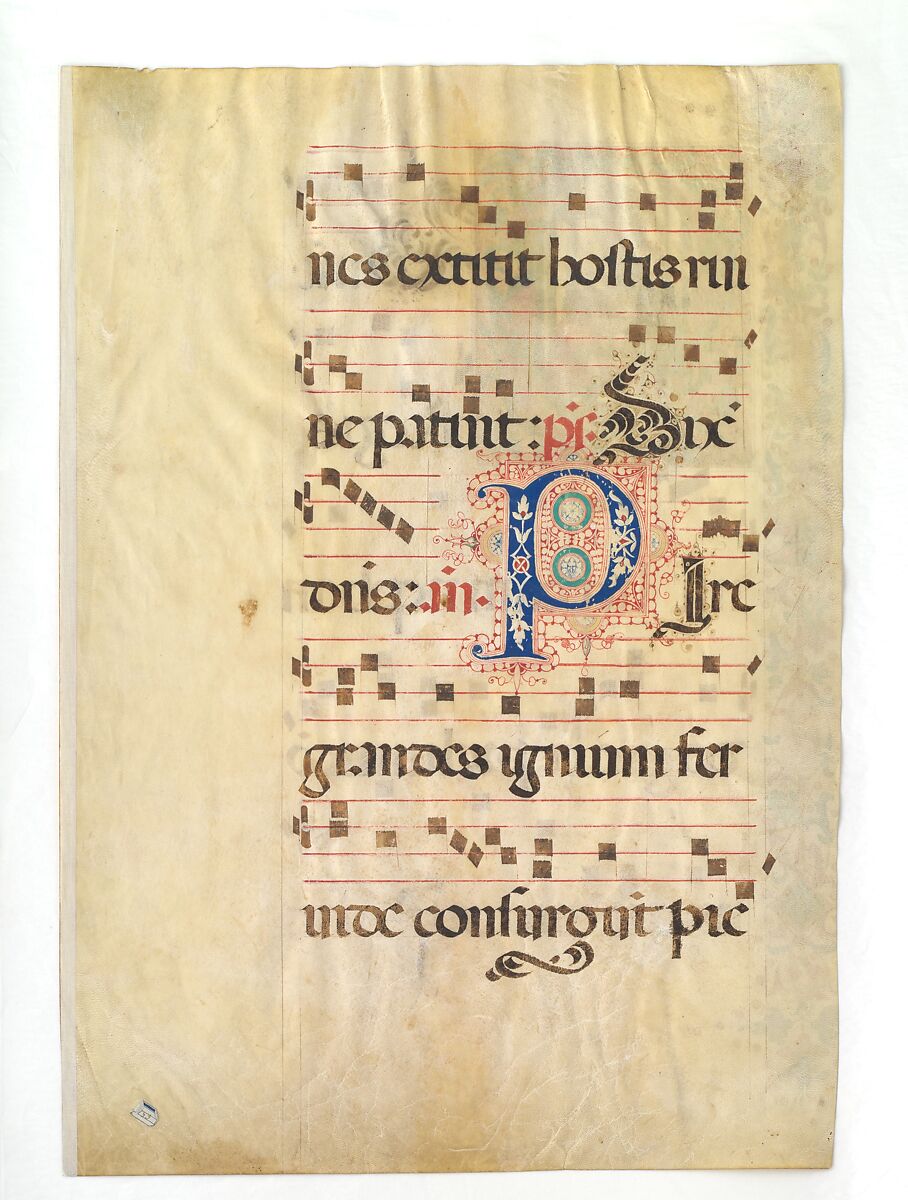 nes extitit hostis rui
ne patuit : ps. Dixẽ
dñs : iñ. P Ire
grandes ignium fer
uide consurgũt pie